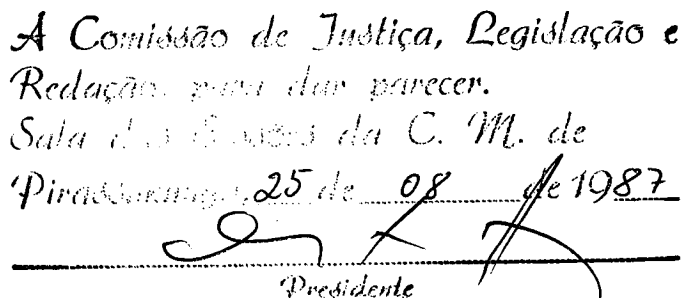 A Comissão de Justiça, Legislação e
Redação, para dar parecer.
Sala das Sessões da C. M. de
Pirassununga, 25 de 08 de 1987
Presidente